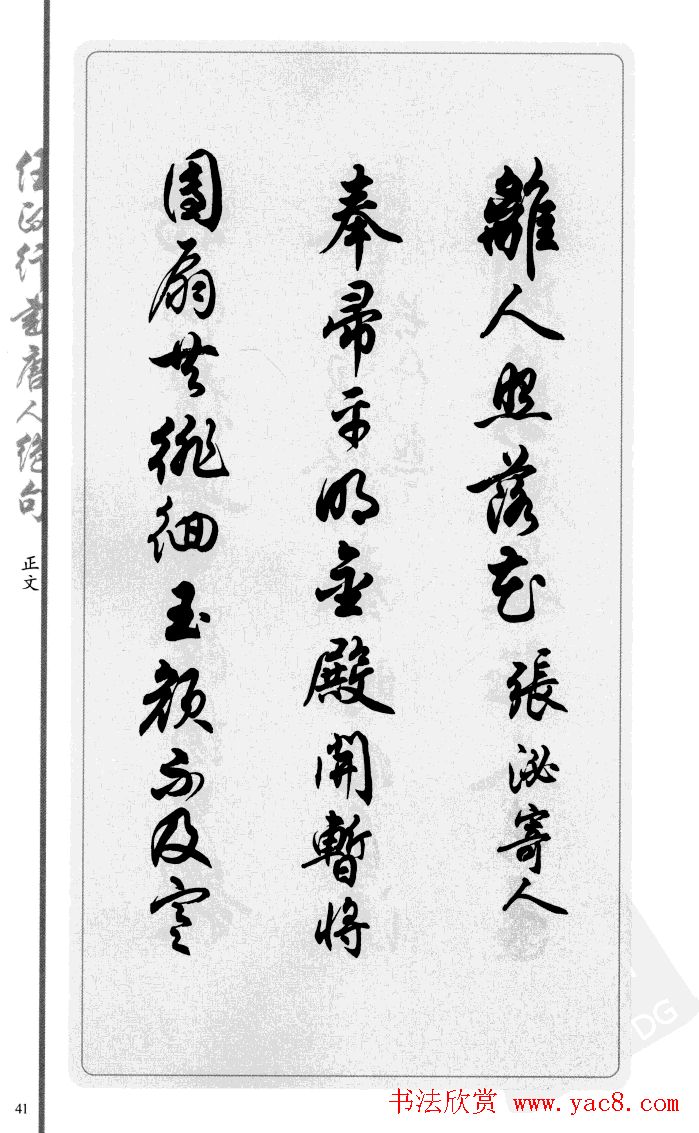 離人照落花 張泌寄人
奉帚平明金殿開暫將
團扇共徘徊玉顏不及寒
任政行書唐人绝句
正文
41
书法欣赏 www.yac8.com
DG